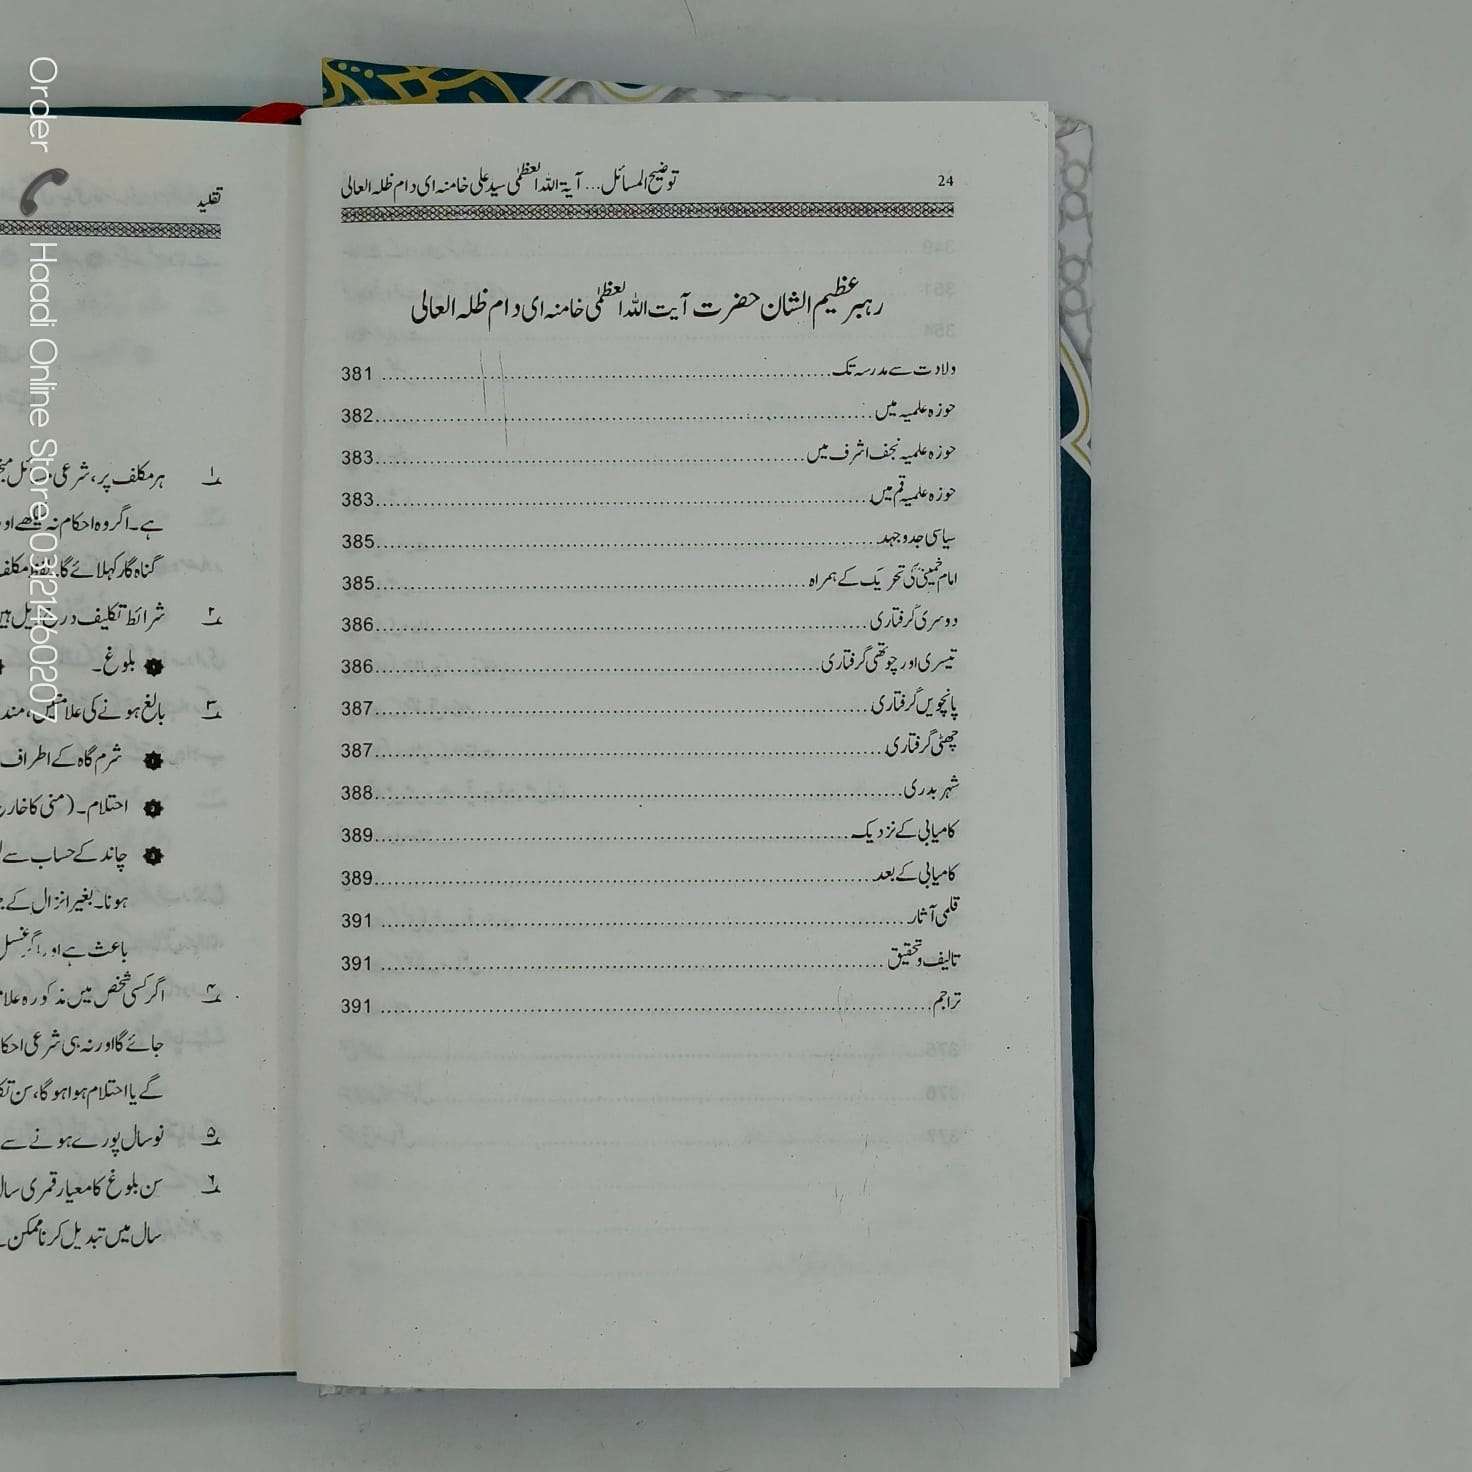 24
توضیح المسائل... آیۃ اللہ العظمٰی سید علی خامنہ ای دام ظلہ العالی
رہبر عظیم الشان حضرت آیت اللہ العظمٰی خامنہ ای دام ظلہ العالی
ولادت سے مدرسہ تک 381
حوزہ علمیہ میں 382
حوزہ علمیہ نجف اشرف میں 383
حوزہ علمیہ قم میں 383
سیاسی جدوجہد 385
امام خمینیؒ کی تحریک کے ہمراہ 385
دوسری گرفتاری 386
تیسری اور چوتھی گرفتاری 386
پانچویں گرفتاری 387
چھٹی گرفتاری 387
شہر بدری 388
کامیابی کے نزدیک 389
کامیابی کے بعد 389
قلمی آثار 391
تالیف و تحقیق 391
تراجم 391
تقلید
۱ ہر مکلف پر، شرعی
ہے۔ اگر وہ احکام نہ
گناہ گار کہلائے گا۔
۲ شرائط تکلیف
بلوغ۔
۳ بالغ ہونے کی علامتیں، مند
شرم گاہ کے اطراف
احتلام۔ (منی کا خارج
چاند کے حساب سے
ہونا۔ بغیر انزال کے
باعث ہے اور اگر غسل
۴ اگر کسی شخص میں مذکورہ
جائے گا اور نہ ہی شرعی
گے یا احتلام ہوا ہو گا، سن
۵ نو سال پورے ہونے سے
۶ سن بلوغ کا معیار قمری سال
سال میں تبدیل کرنا ممکن
Order Haadi Online Store 03121460207